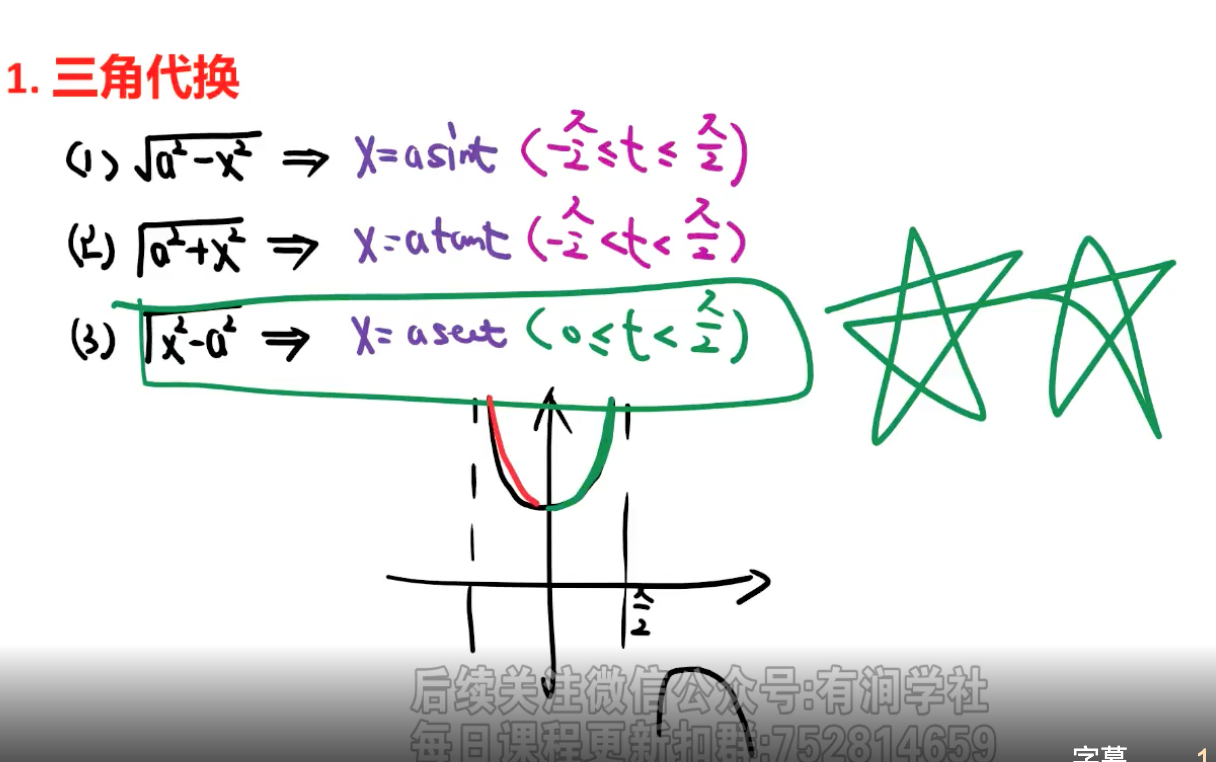 1. 三角代换
(1) √a²-x² ⇒ x=asint (-π/2≤t≤π/2)
(2) √a²+x² ⇒ x=atant (-π/2<t<π/2)
(3) √x²-a² ⇒ x=asect (0≤t<π/2)
π/2
后续关注微信公众号:有润学社
每日课程更新扣群:752814659
字幕 1